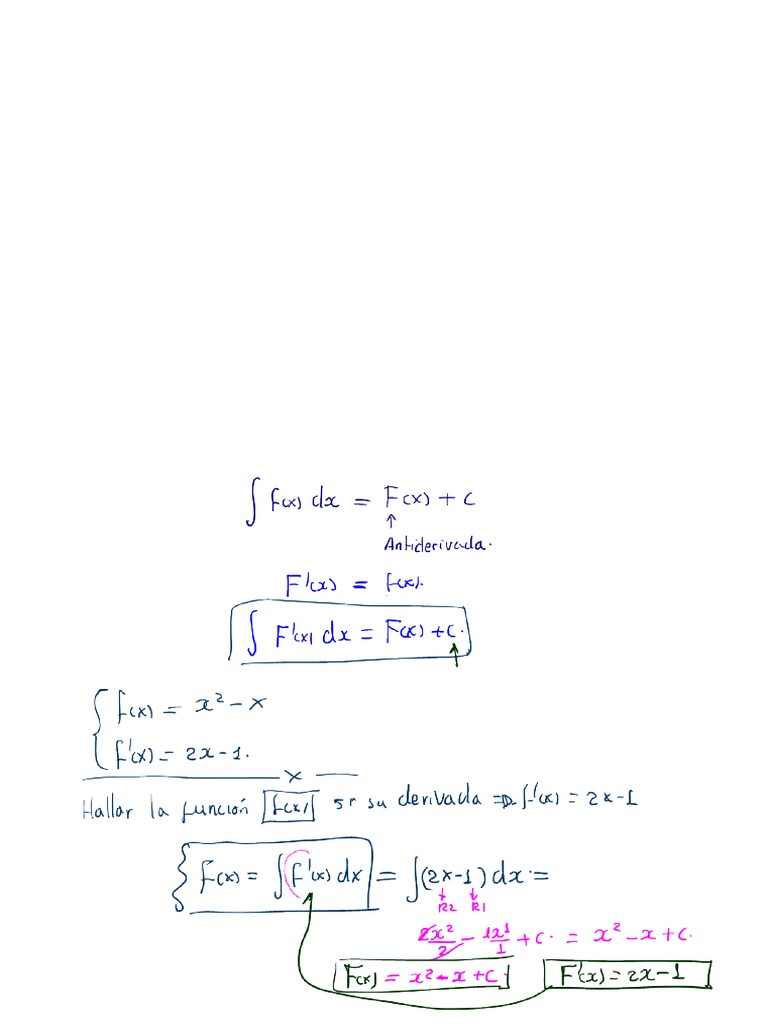 ∫ f(x) dx = F(x) + c
↑
Antiderivada.
F'(x) = f(x).
∫ F'(x) dx = F(x) + c.
↑
f(x) = x² - x
f'(x) = 2x - 1.
x
Hallar la función f(x) si su derivada ⇒ f'(x) = 2x - 1
f(x) = ∫ f'(x) dx = ∫(2x - 1) dx. =
↓ ↓
R2 R1
2x²/2 - 1x¹/1 + c. = x² - x + c.
F(x) = x² - x + c. F'(x) = 2x - 1